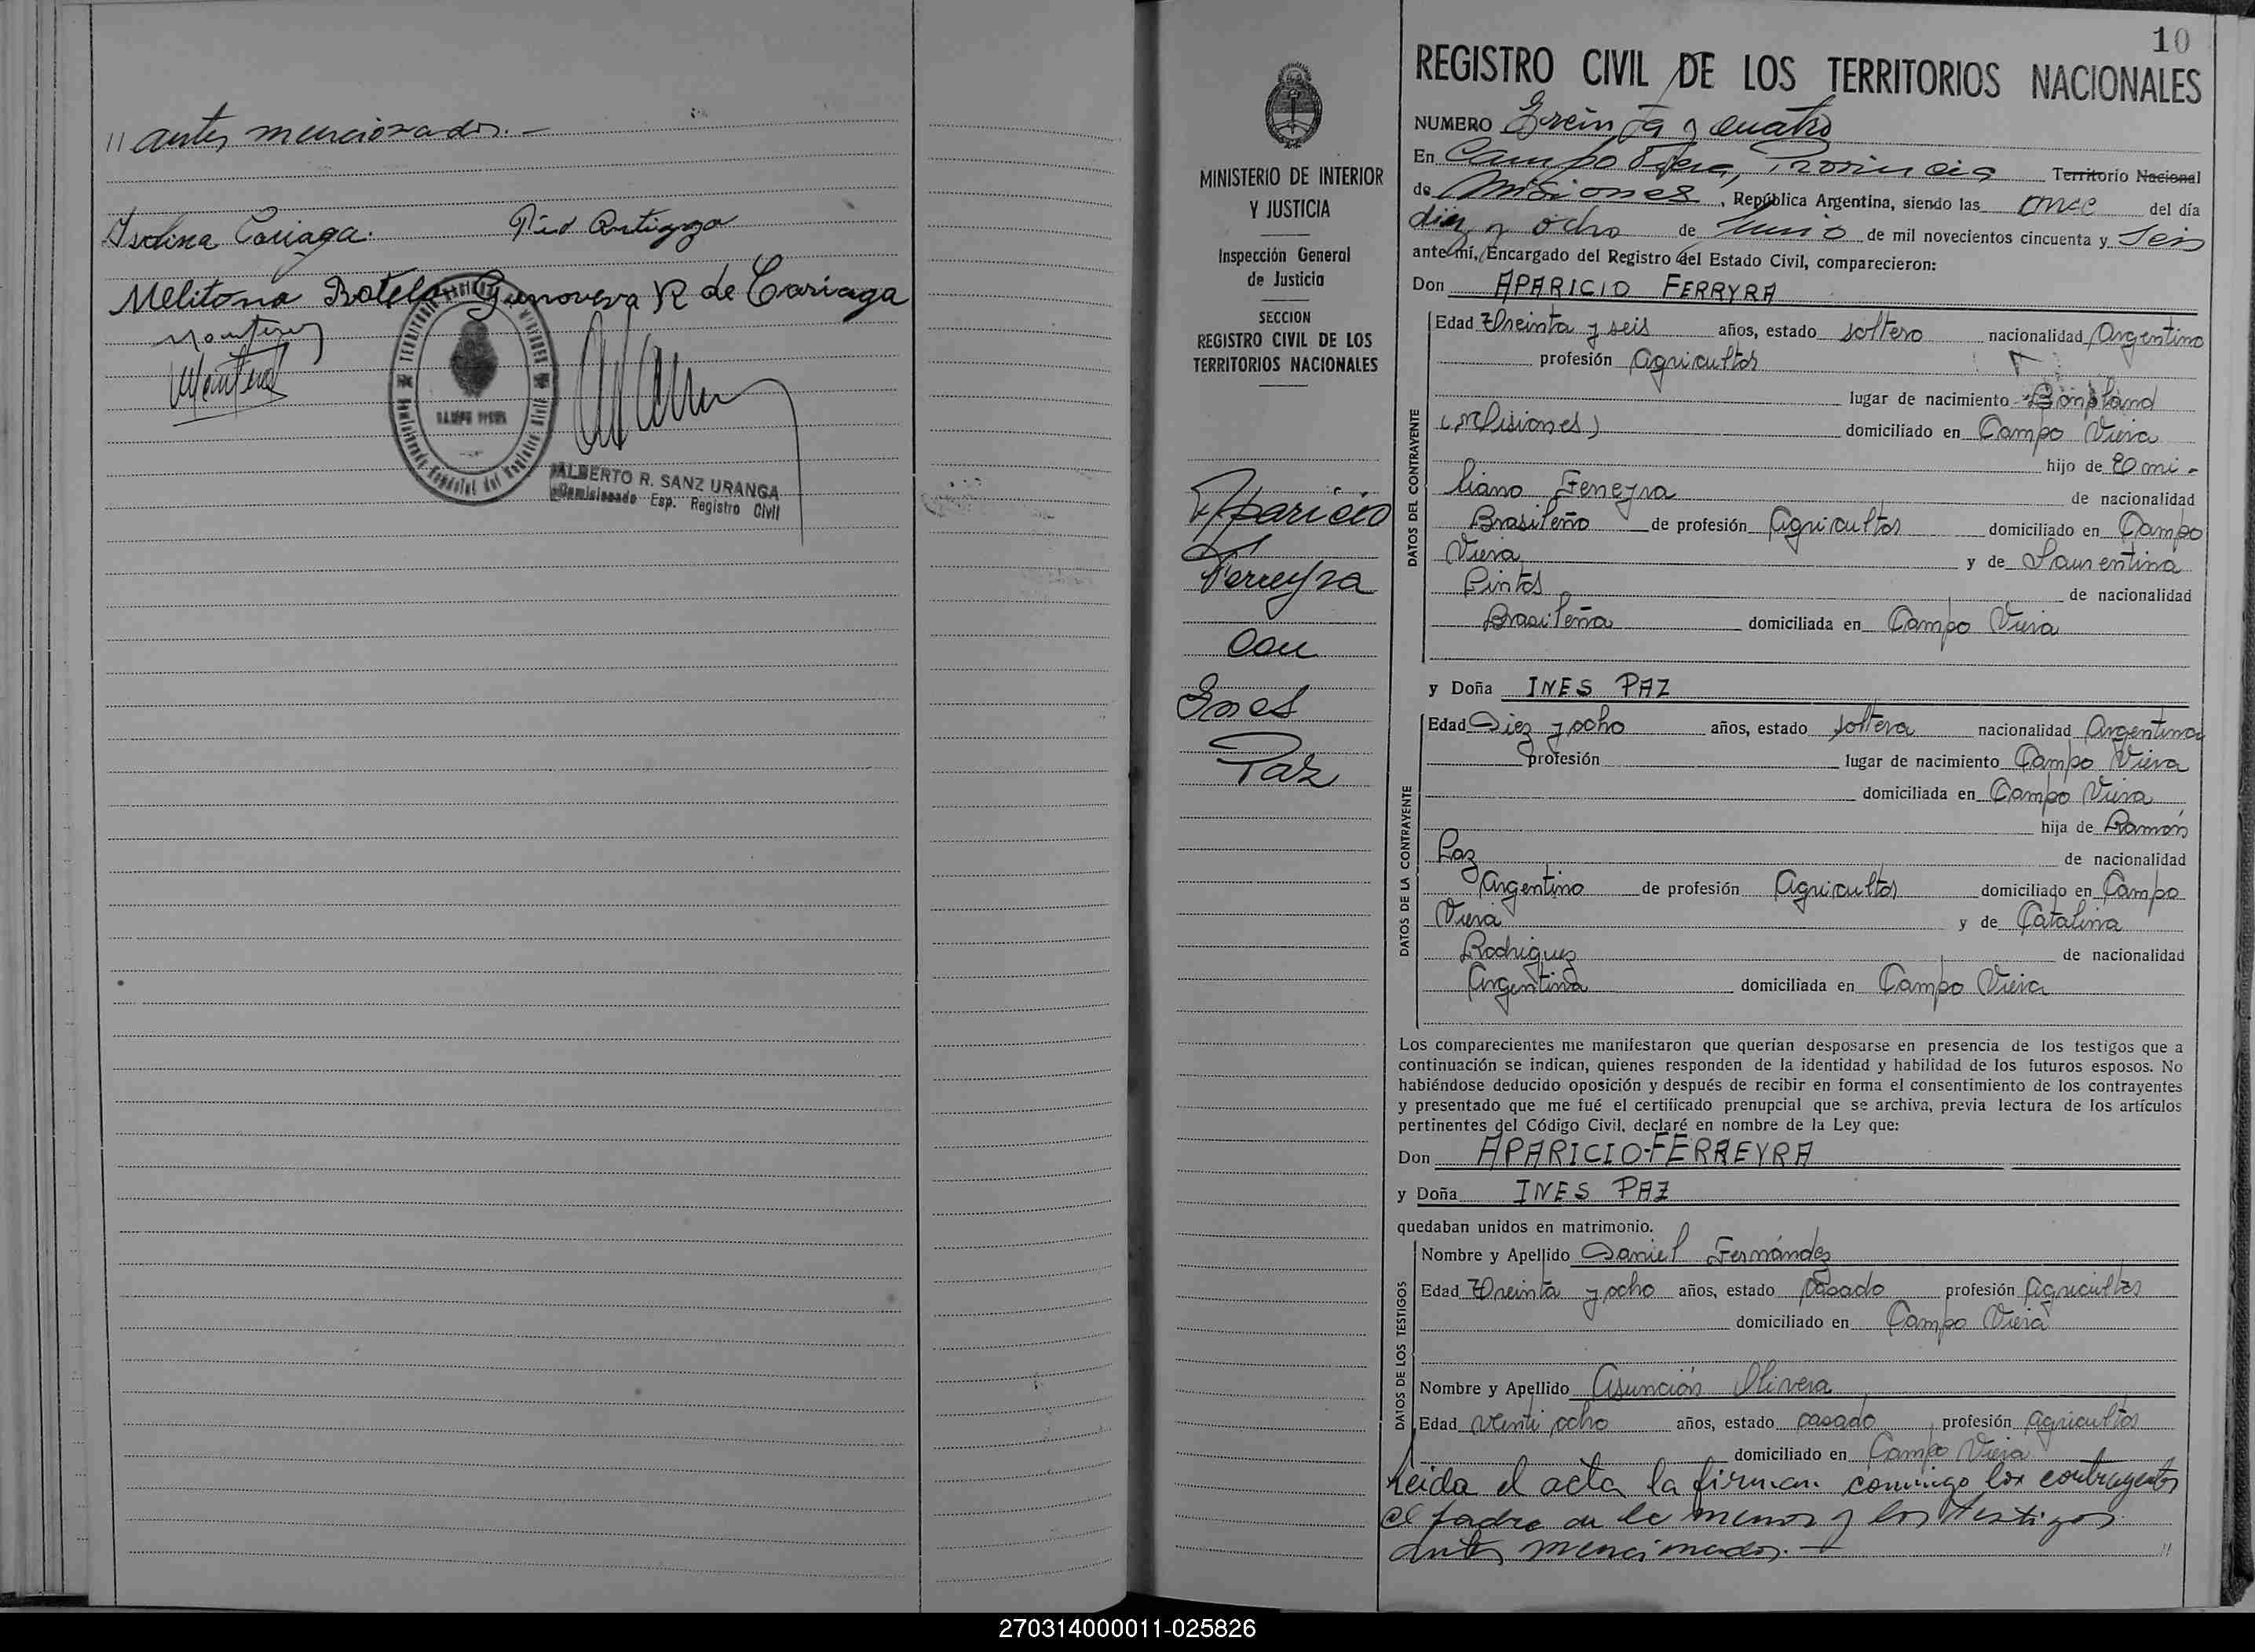 // antes mencionados.-
Isolina Cariaga. Pio Artigazo
Melitona Botelo Genoveva R de Cariaga
Montenez
CAMPO VIERA
ALBERTO R. SANZ URANGA
Comisionado Esp. Registro Civil
10
MINISTERIO DE INTERIOR
Y JUSTICIA
Inspección General
de Justicia
SECCION
REGISTRO CIVIL DE LOS
TERRITORIOS NACIONALES
Aparicio
Ferreyra
con
Ines
Paz
REGISTRO CIVIL DE LOS TERRITORIOS NACIONALES
NUMERO Treinta y cuatro
En Campo Viera, Provincia Territorio Nacional
de Misiones, República Argentina, siendo las once del día
diez y ocho de Junio de mil novecientos cincuenta y Seis
ante mí, Encargado del Registro del Estado Civil, comparecieron:
Don APARICIO FERRYRA
DATOS DEL CONTRAYENTE
Edad Treinta y seis años, estado soltero nacionalidad Argentino
profesión Agricultor
lugar de nacimiento Bonpland
(Misiones) domiciliado en Campo Viera
hijo de Emi-
liano Ferreyra de nacionalidad
Brasileño de profesión Agricultor domiciliado en Campo
Viera y de Laurentina
Pintos de nacionalidad
Brasileña domiciliada en Campo Viera
y Doña INES PAZ
DATOS DE LA CONTRAYENTE
Edad Diez y ocho años, estado soltera nacionalidad Argentina
profesión lugar de nacimiento Campo Viera
domiciliada en Campo Viera
hija de Ramón
Paz de nacionalidad
Argentino de profesión Agricultor domiciliado en Campo
Viera y de Catalina
Rodriguez de nacionalidad
Argentina domiciliada en Campo Viera
Los comparecientes me manifestaron que querían desposarse en presencia de los testigos que a
continuación se indican, quienes responden de la identidad y habilidad de los futuros esposos. No
habiéndose deducido oposición y después de recibir en forma el consentimiento de los contrayentes
y presentado que me fué el certificado prenupcial que se archiva, previa lectura de los artículos
pertinentes del Código Civil, declaré en nombre de la Ley que:
Don APARICIO-FERREYRA
y Doña INES PAZ
quedaban unidos en matrimonio.
DATOS DE LOS TESTIGOS
Nombre y Apellido Daniel Fernández
Edad Treinta y ocho años, estado casado profesión Agricultor
domiciliado en Campo Viera
Nombre y Apellido Asunción Olivera
Edad venti ocho años, estado casado profesión agricultor
domiciliado en Campo Viera
Leida el acta la firman conmigo los contrayentes
el padre de la menor y los testigos
antes mencionados.- //
270314000011-025826